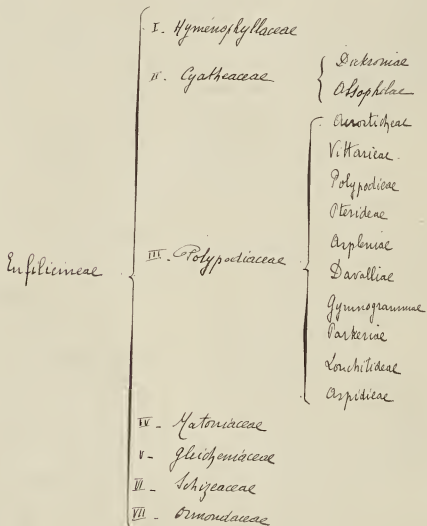 I. Hyménophyllaceae
II. Cyatheaceae
Dicksoniae
Alsophilae
Enfilicineae
III. Polypodiaceae
Acrosticheae
Vittarieae.
Polypodieae
Pterideae
Aspleniae
Davalliae
Gymnogrammae
Parkeriae
Lonchitideae
Aspidieae
IV - Matoniaceae
V - Gleicheniaceae
VI - Schizeaceae
VII - Osmondaceae